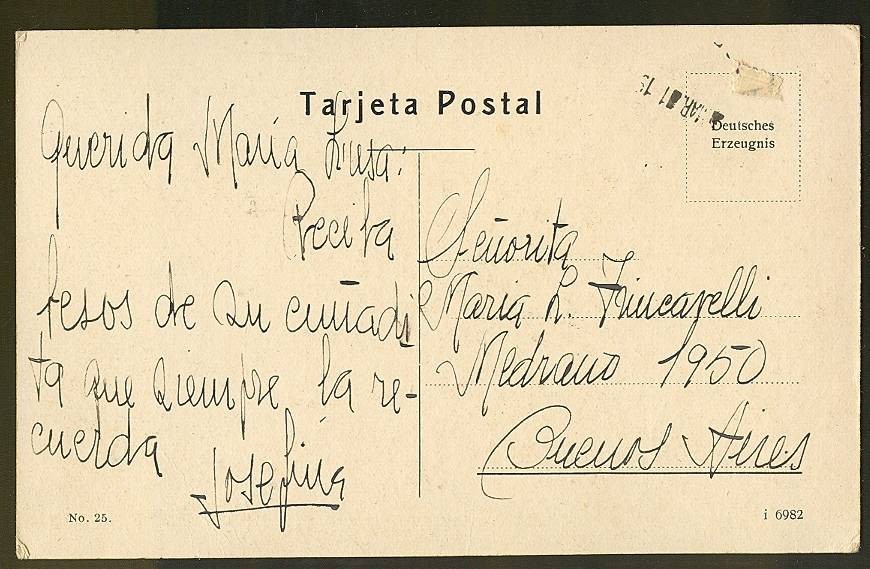 Tarjeta Postal
MAR. 81 19
Deutsches
Erzeugnis
Querida María Luisa:
Reciba
besos de su cuñadi
ta que siempre la re-
cuerda
Josefina
Señorita
Maria L. Fiucavelli
Medrano 1950
Buenos Aires
No. 25.
i 6982